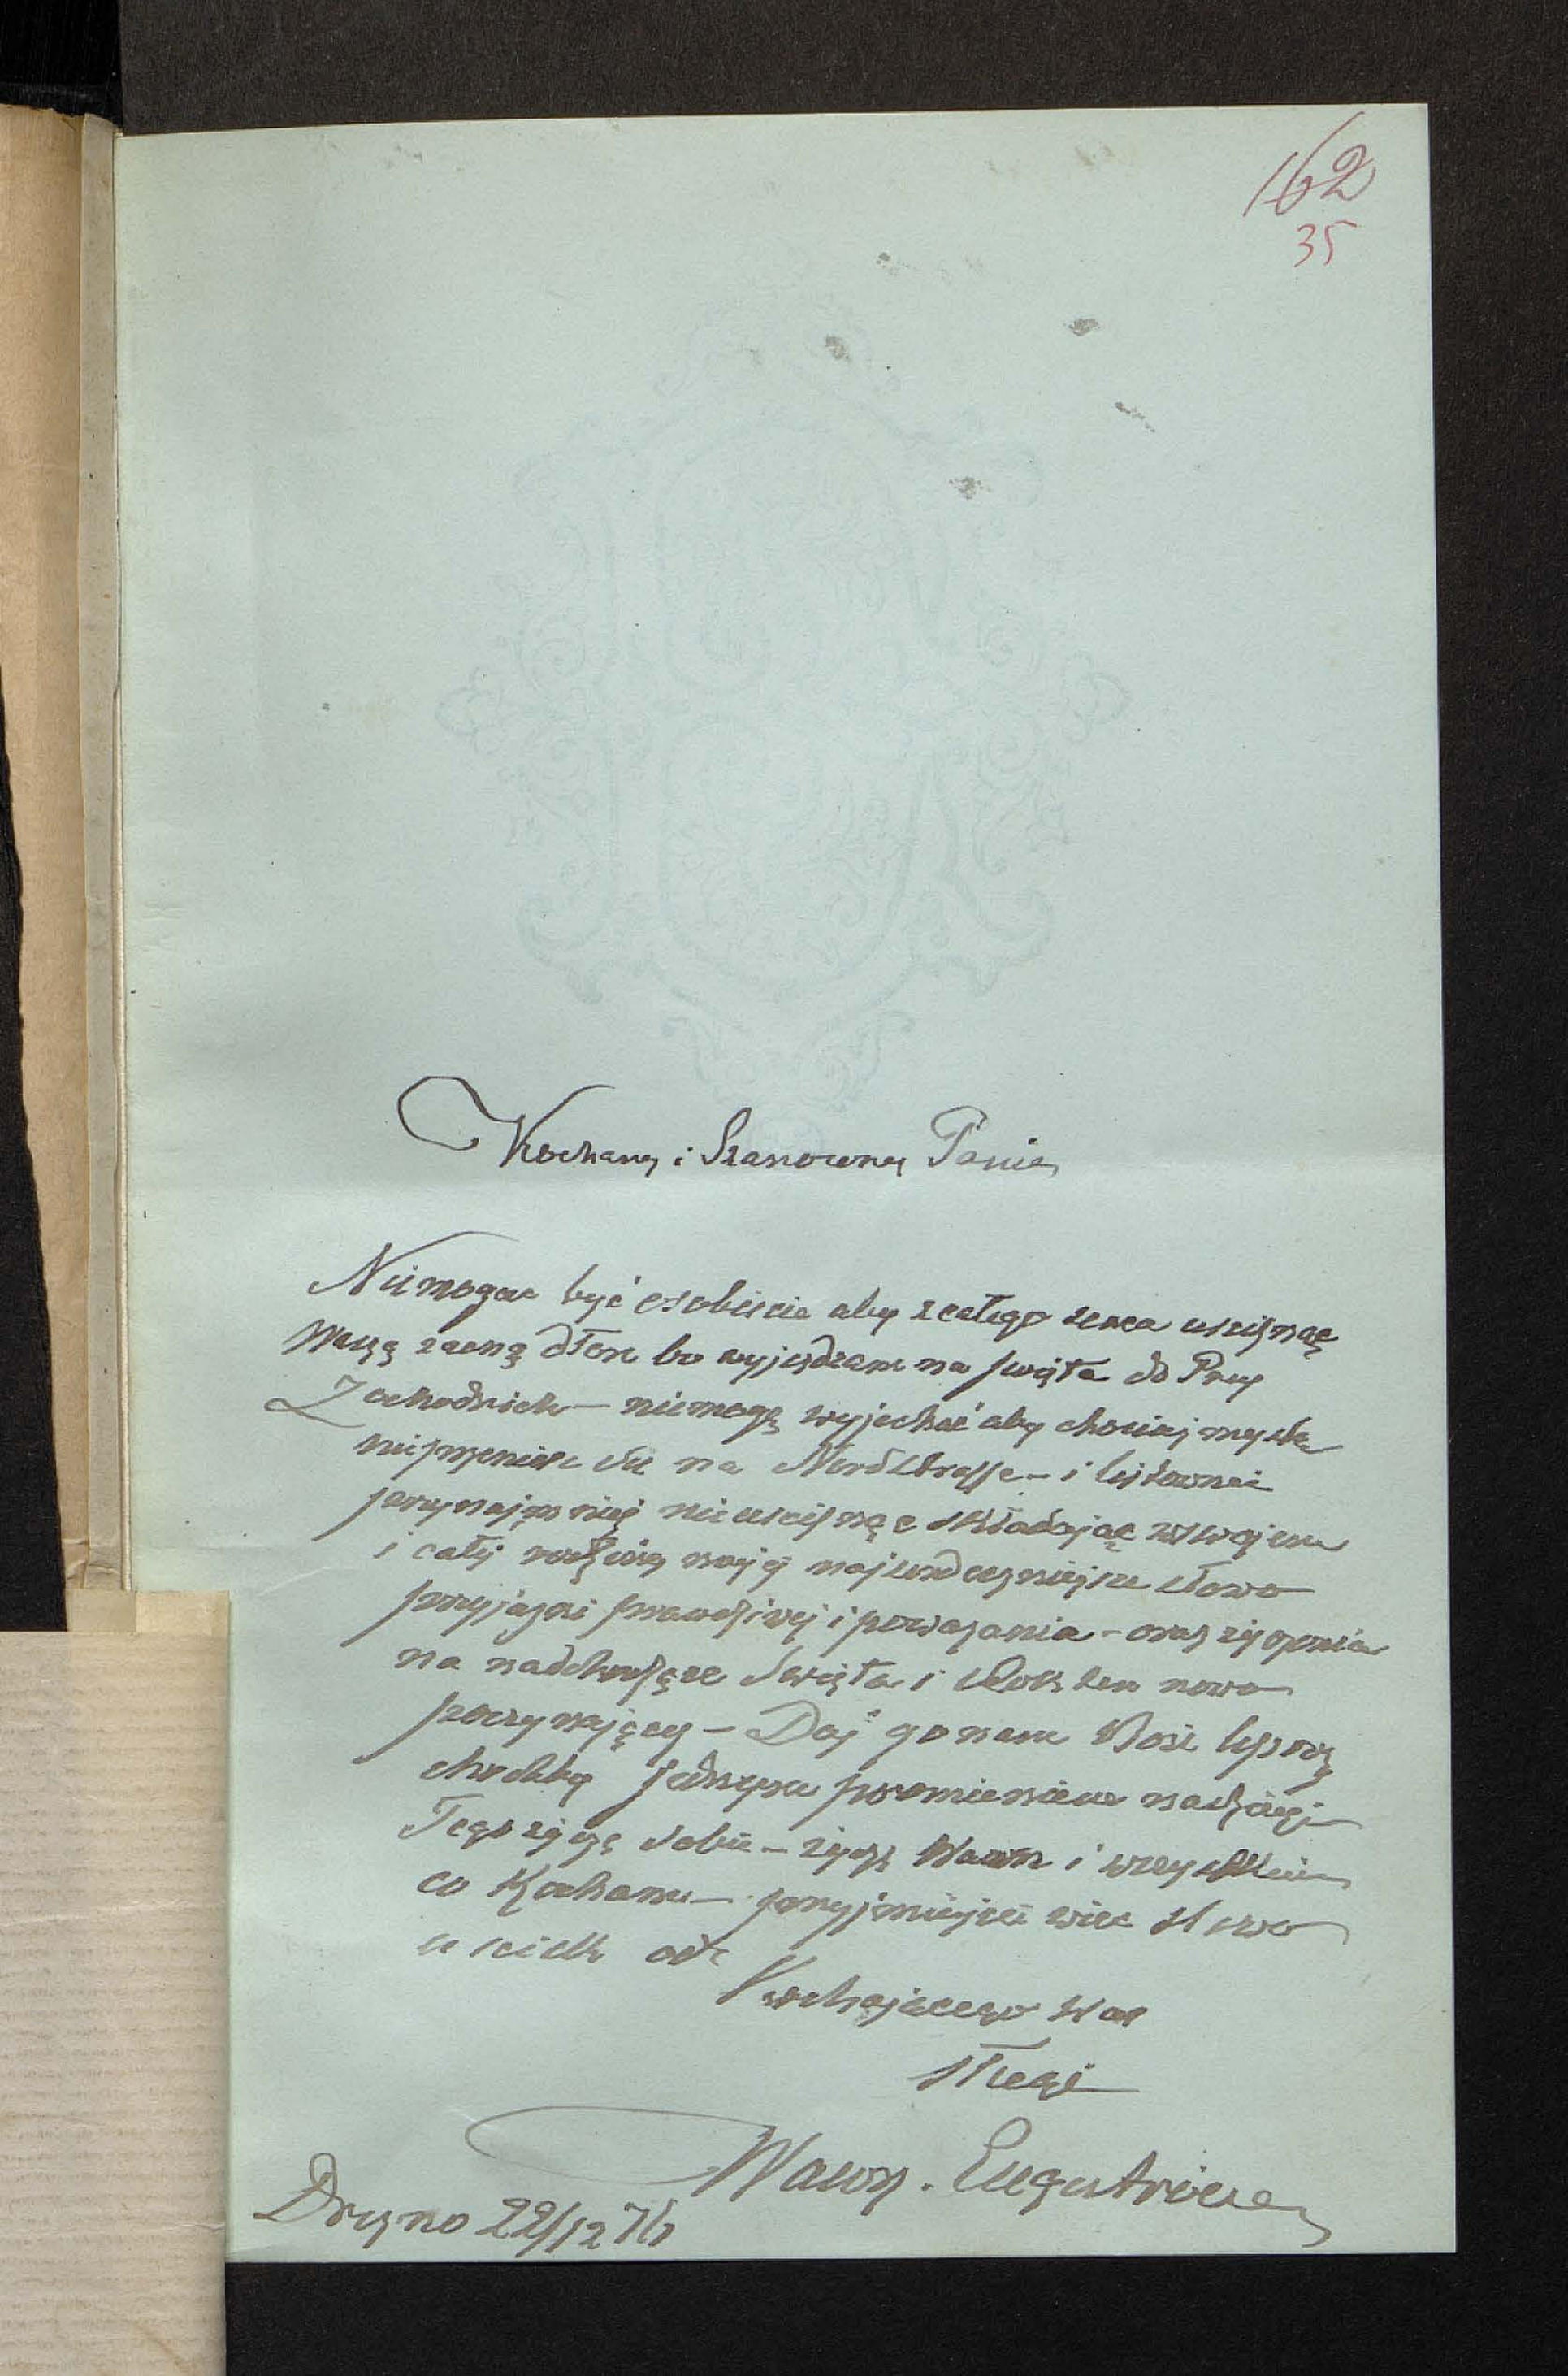 162
35
Kochany i Szanowny Panie
Niemogąc być osobiście aby z całego serca uscisnąć
Waszą zacną dłoń bo wyjeżdzam na swięta do Prus
Zachodnich — niemogę wyjechać aby chociaj myślą
nieprzenieść się na Nordstrasse — i listownie
przynajmniej nieuscisnąć składając
i całej rodziny mojej najserdeczniejsze słowo
przyjazni prawdziwej i powazania — oraz życzenia
na nadchodzące Swięta i Rok ten nowo
poczynający — Daj go nam Boże lepszy
chociby jednym promieniem nadzieji
Tego życzę sobie — życzę Wam i wszystkim
co Kocham — przyjmijcie więc słowo
i uscisk od
Kochającego Was
sługi
Wawrz. Engeström
Drezno 22/12 76